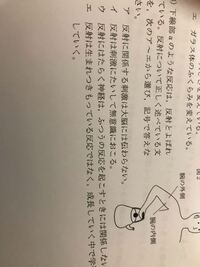 エ　ガラス体のふくらみを変えている。
下線部aのような反応は，反射とよばれ
ている。反射について正しく述べている文
を，次のア～エから選び，記号で答えな
さい。
ア　反射に関係する刺激は大脳には伝わらない。
イ　反射は刺激にたいして無意識におこる。
ウ　反射にはたらく神経は，ふつうの反応を起こすときには関係しない
エ　反射は生まれつきもっている反応ではなく，成長していく中で学
していく。
腕の外側
腕の内側